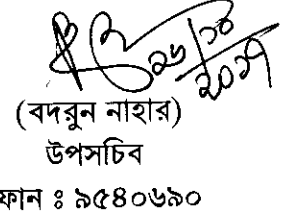 ২৬/১০
২০১৭
(বদরুন নাহার)
উপসচিব
ফোন ঃ ৯৫৪০৬৯০